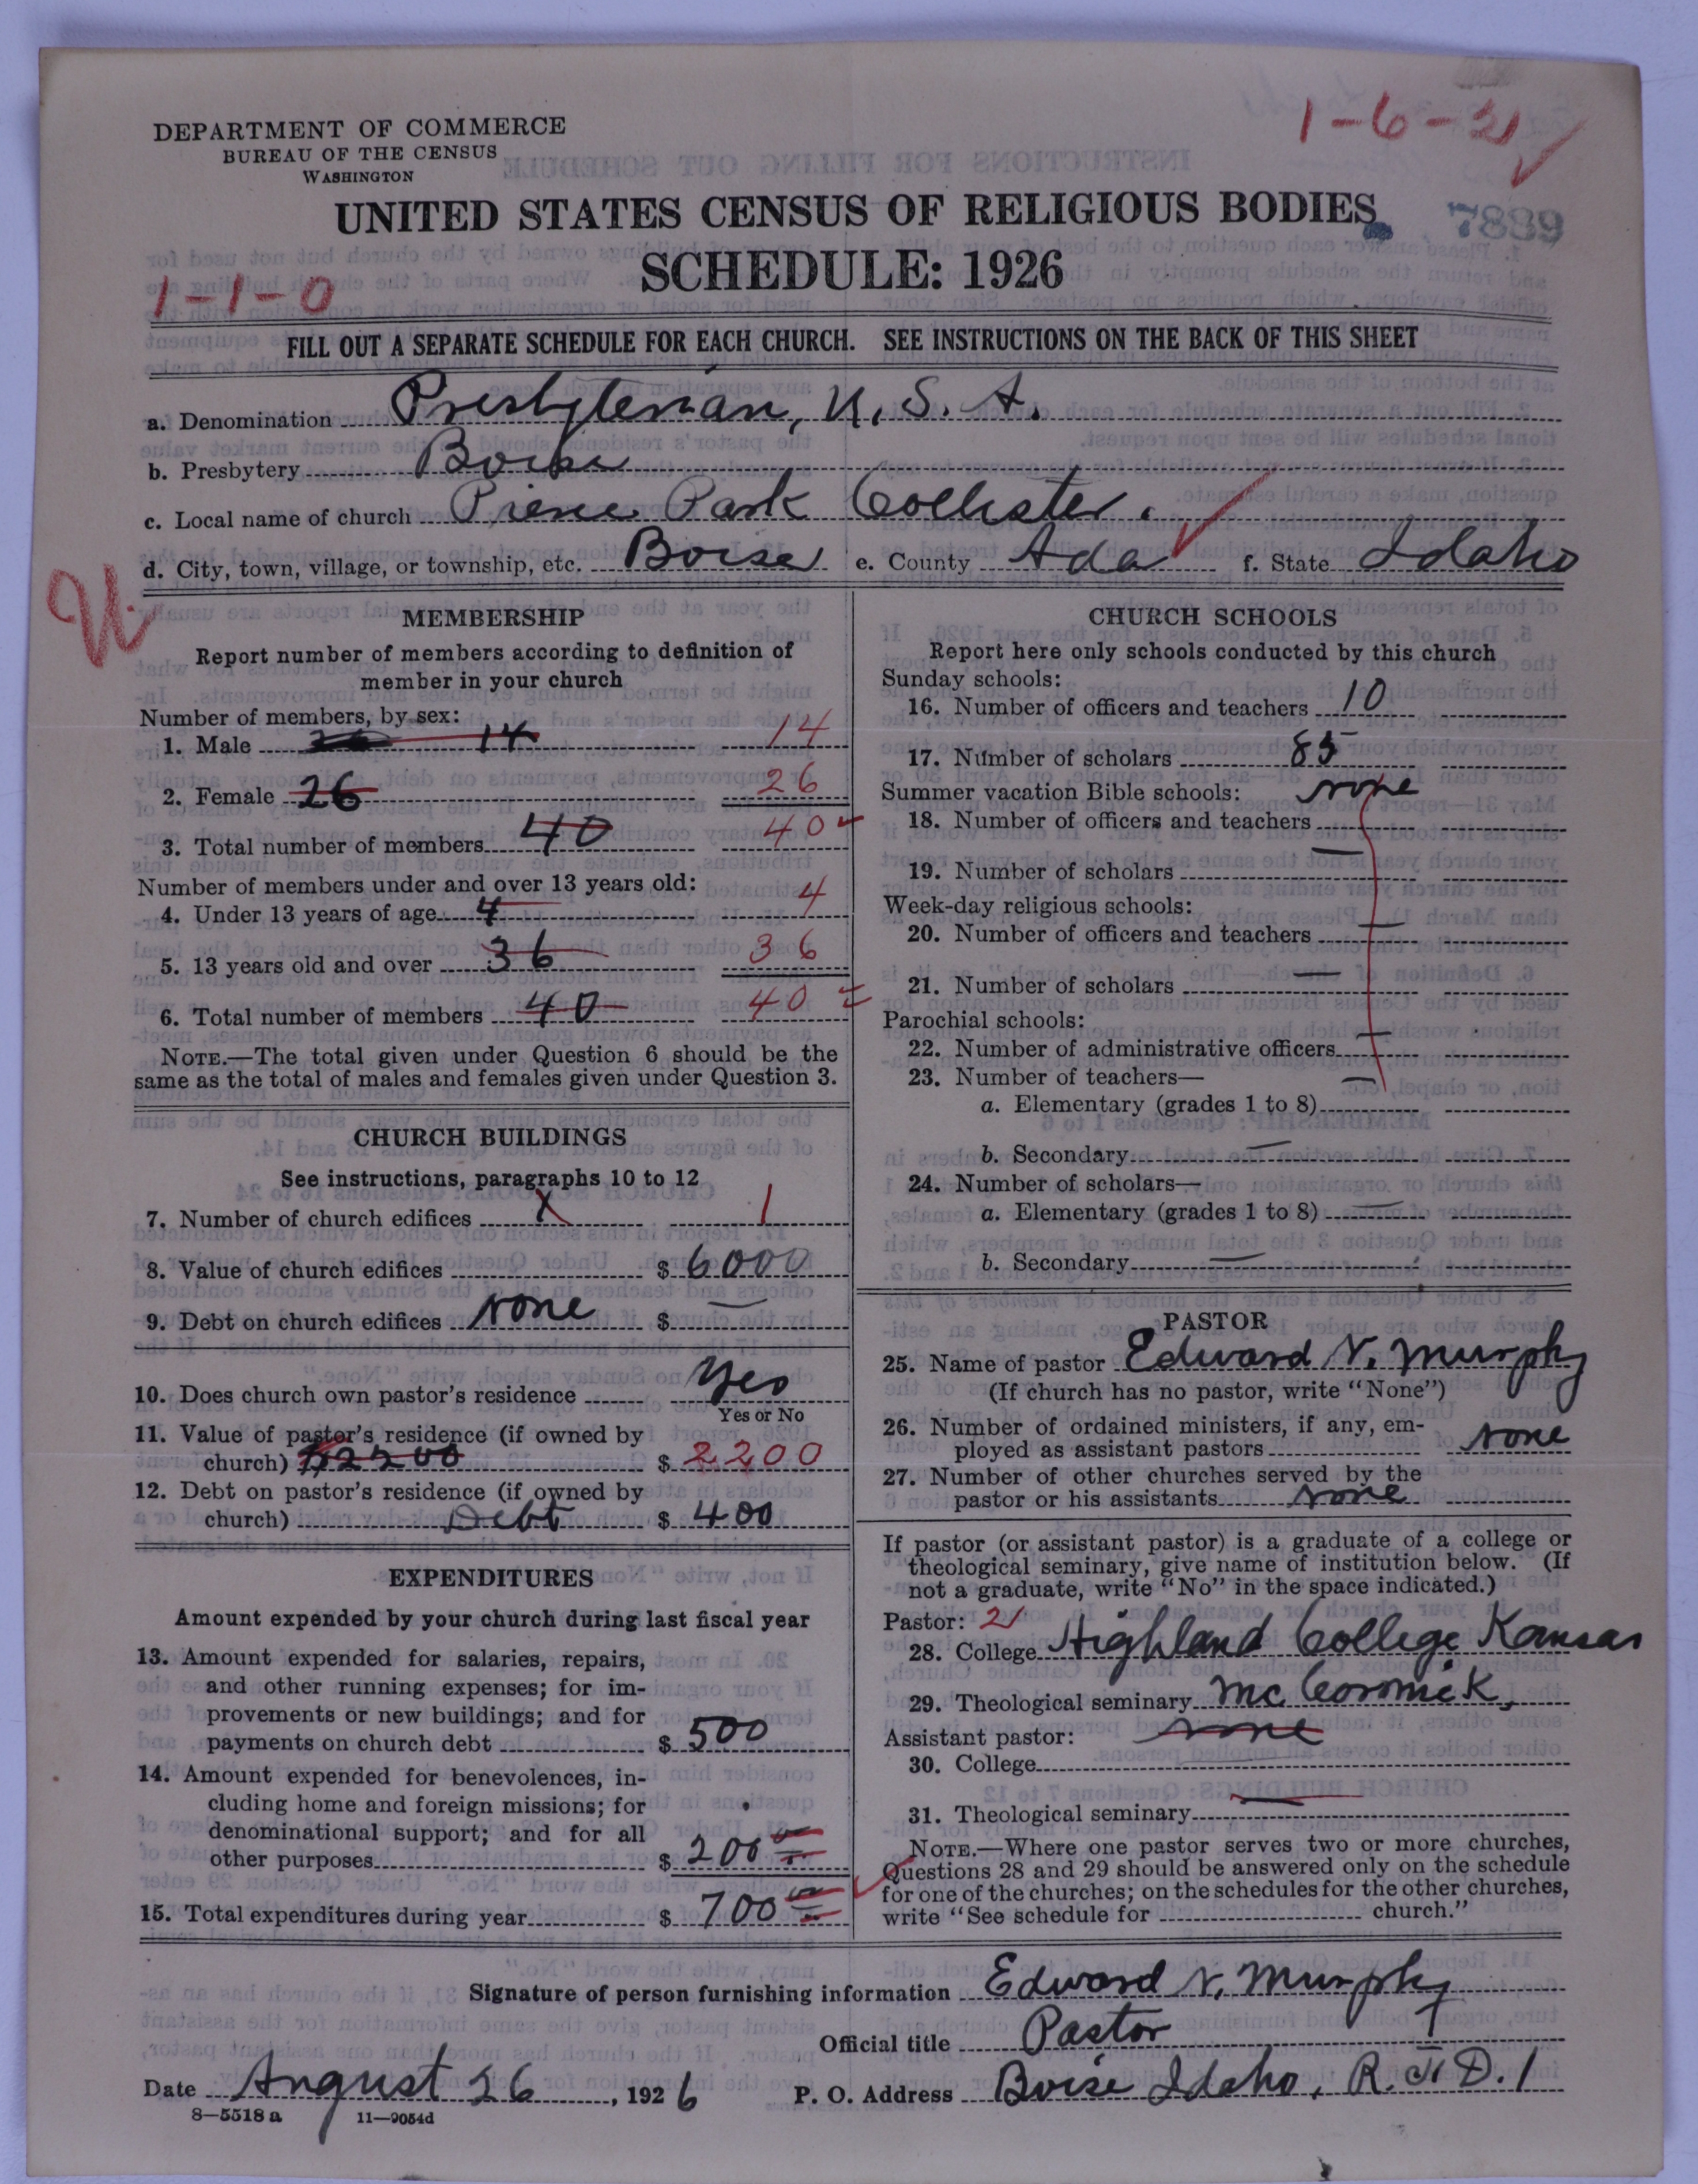 1-6-21
DEPARTMENT OF COMMERCE
BUREAU OF THE CENSUS
WASHINGTON
UNITED STATES CENSUS OF RELIGIOUS BODIES
7889
SCHEDULE: 1926
1-1-0
FILL OUT A SEPARATE SCHEDULE FOR EACH CHURCH. SEE INSTRUCTIONS ON THE BACK OF THIS SHEET
a. Denomination Presbyterian, U. S. A.
b. Presbytery Boise
c. Local name of church Pierce Park Collister.
d. City, town, village, or township, etc. Boise e. County Ada f. State Idaho
MEMBERSHIP
Report number of members according to definition of
member in your church
Number of members, by sex:
1. Male 14 14
2. Female 26 26
3. Total number of members 40 40
Number of members under and over 13 years old:
4. Under 13 years of age 4 4
5. 13 years old and over 36 36
6. Total number of members 40 40
NOTE.—The total given under Question 6 should be the
same as the total of males and females given under Question 3.
CHURCH BUILDINGS
See instructions, paragraphs 10 to 12
7. Number of church edifices 1
8. Value of church edifices $ 6000
9. Debt on church edifices None $ —
10. Does church own pastor's residence Yes
Yes or No
11. Value of pastor's residence (if owned by
church) $2200 $ 2200
12. Debt on pastor's residence (if owned by
church) Debt $ 400
EXPENDITURES
Amount expended by your church during last fiscal year
13. Amount expended for salaries, repairs,
and other running expenses; for im-
provements or new buildings; and for
payments on church debt $ 500
14. Amount expended for benevolences, in-
cluding home and foreign missions; for
denominational support; and for all
other purposes $ 200
15. Total expenditures during year $ 700
CHURCH SCHOOLS
Report here only schools conducted by this church
Sunday schools:
16. Number of officers and teachers 10
17. Number of scholars 85
Summer vacation Bible schools: None
18. Number of officers and teachers
19. Number of scholars —
Week-day religious schools:
20. Number of officers and teachers —
21. Number of scholars —
Parochial schools:
22. Number of administrative officers —
23. Number of teachers—
a. Elementary (grades 1 to 8) —
b. Secondary —
24. Number of scholars—
a. Elementary (grades 1 to 8) —
b. Secondary —
PASTOR
25. Name of pastor Edward N. Murphy
(If church has no pastor, write "None")
26. Number of ordained ministers, if any, em-
ployed as assistant pastors None
27. Number of other churches served by the
pastor or his assistants None
If pastor (or assistant pastor) is a graduate of a college or
theological seminary, give name of institution below. (If
not a graduate, write "No" in the space indicated.)
Pastor: 21
28. College Highland College Kansas
29. Theological seminary McCormick,
Assistant pastor: none
30. College
31. Theological seminary —
NOTE.—Where one pastor serves two or more churches,
Questions 28 and 29 should be answered only on the schedule
for one of the churches; on the schedules for the other churches,
write "See schedule for church."
Signature of person furnishing information Edward N. Murphy
Official title Pastor
Date August 26, 1926 P. O. Address Boise Idaho, R. F. D. 1
8—5518 a 11—9054d